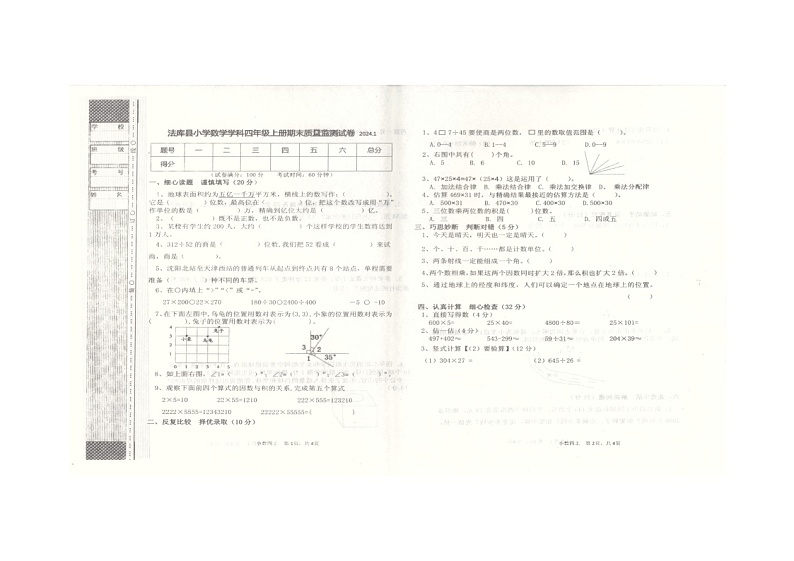 法库县小学数学学科四年级上册期末质量监测试卷 2024.1
学 校
班 级
考 号
姓 名
题号 一 二 三 四 五 六 总分
得分
(试卷满分：100分 考试时间：60分钟)
一、细心读题 谨慎填写(20分)
1、地球表面积约为五亿一千万平方千米，横线上的数写作：( )，
它是( )位数，最高位在( )位；把这个数改写成用“万”
作单位的数是( )万，精确到亿位大约是( )亿。
2、( )既不是正数，也不是负数。
3、某校有学生约200人，大约( )个这样学校的学生数将达到
1万人。
4、312÷52的商是( )位恰，我们把52看成( )来试
商，商是( )。
5、沈阳北站至天津西站的普通列车从起点到终点共有8个站点，单程需要
准备( )种不同的车票。
6、在○内填上“>”“<”或“=”。
27×200○22×270 180÷30○2400÷400 -5 ○ -10
7、在下面左图中，乌龟的位置用数对表示为(3,3)，小象的位置用数对表示为
( )，兔子的位置用数对表示为( )。
4
3
2
1
0 1 2 3 4 5
小象
乌龟
兔子
30°
3
2
1
35°
8、如上面右图，
9、观察下面前四个算式的因数与积的关系，完成第五个算式
2×5=10 22×55=1210 222×555=123210
2222×5555=12343210 22222×55555=( )
二、反复比较 择优录取(10分)
小数四上 第1页；共4页
1、4□7÷45要使商是两位数，□里的数取值范围是( )。
A.0—4 B.1—4 C.5—9 D.0—9
2、右图中共有( )个角。
A. 5 B. 6 C. 10 D. 15
3、47×25×4=47×(25×4)这是运用了( )。
A. 加法结合律 B. 乘法结合律 C. 乘法加交换律 D. 乘法分配律
4、估算469×31时，与精确结果最接近的估算方法是( )。
A. 500×31 B. 470×30 C.400×30 D.500×30
5、三位数乘两位数的积是( )位数。
A. 三 B. 四 C. 五 D. 四或五
三、巧思妙断 判断对错(5分)
1、今天是晴天，明天也一定是晴天。( )
2、个、十、百、千……都是计数单位。( )
3、两条射线一定能组成一个角。( )
4、两个数则乘，如果这两个因数同时扩大2倍，那么积也扩大2倍。( )
5、通过地球上的经度和纬度，人们可以确定一个地点在地球上的位置。
( )
四、认真计算 细心检查(32分)
1、直接写得数(4分)
600×5= 25×40= 4800÷80= 25×101=
2、估一估(4分)
497+402≈ 543-299≈ 59×31≈ 204×39≈
3、竖式计算【(2)要验算】(12分)
(1)304×27 = (2)645÷26 =
小数四上 第2页；共4页